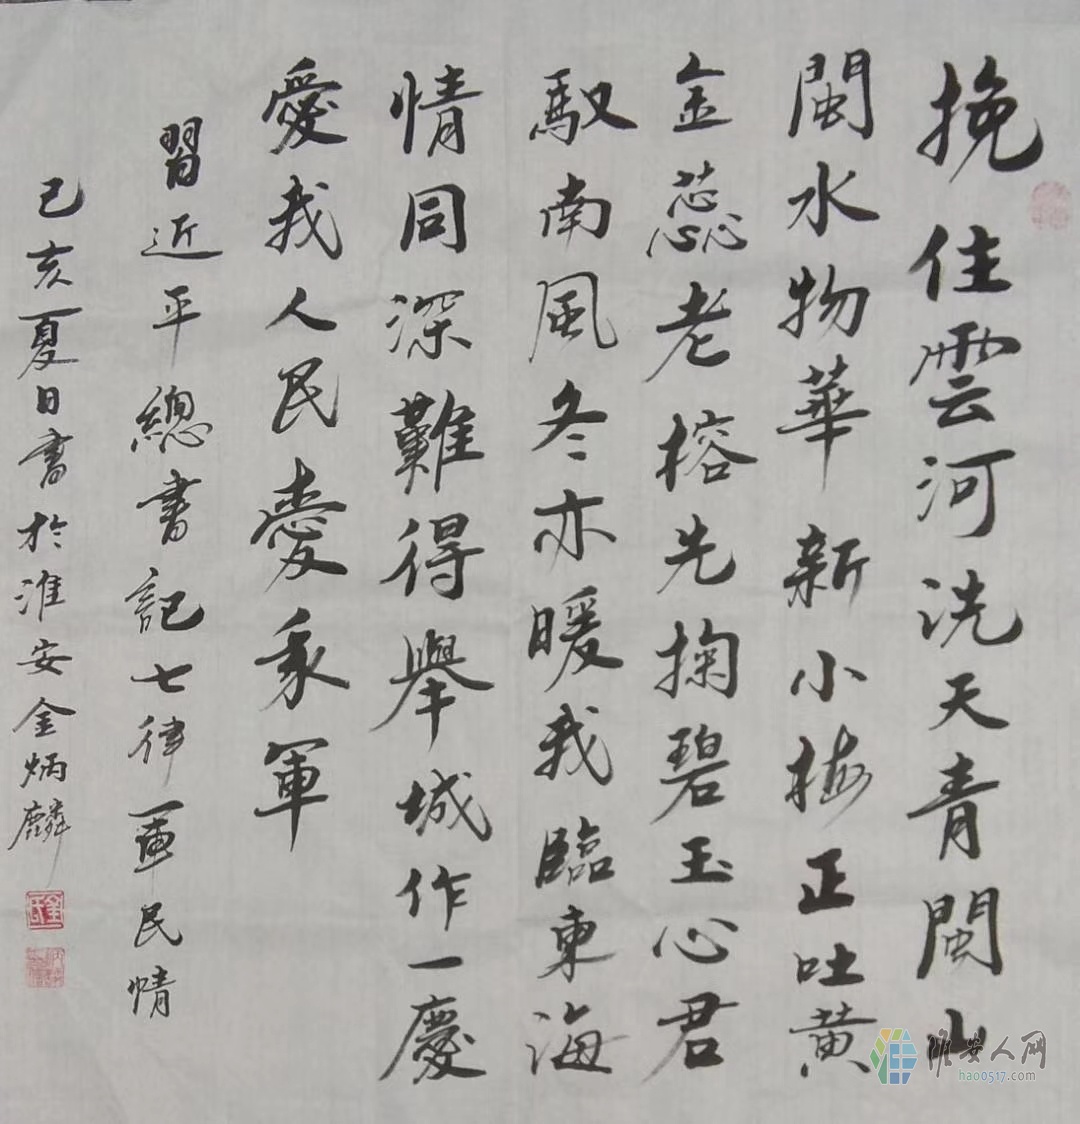 挽住雲河洗天青閩山
閩水物華新小梅正吐黄
金蕊老榕先掬碧玉心君
馭南風冬亦暖我臨東海
情同深難得舉城作一慶
愛我人民愛我軍
習近平總書記七律軍民情
己亥夏日書於淮安金炳麟
淮安人网
hao0517.com